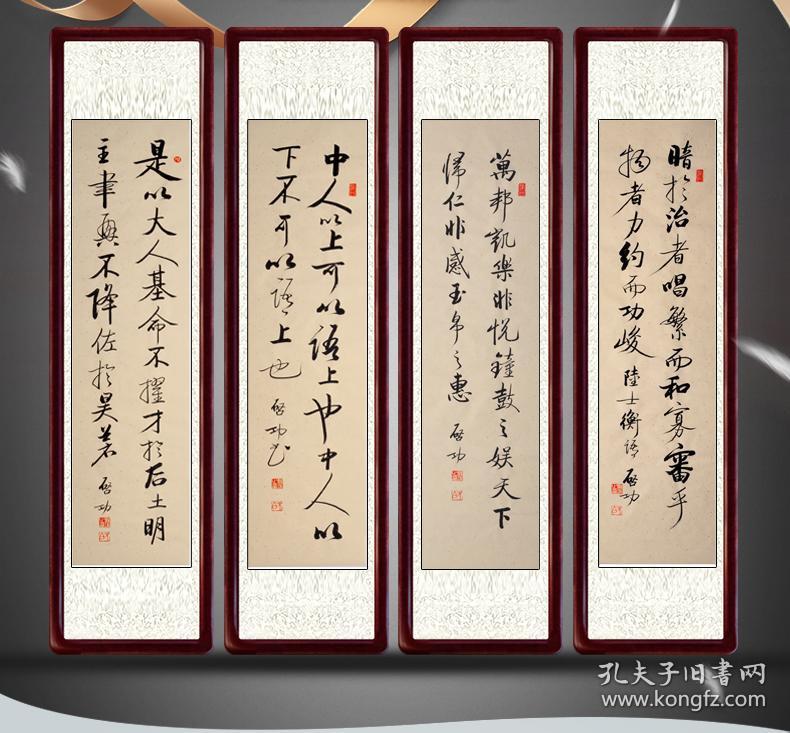 暗於治者唱繁而和寡審乎
物者力約而功峻 陸士衡語 啓功
萬邦凱樂非悦鐘鼓之娱天下
歸仁非感玉帛之惠 啓功
中人以上可以語上也中人以
下不可以語上也 啓功書
是以大人基命不擢才於后土明
主聿興不降佐於昊蒼 啓功
孔夫子旧书网
www.kongfz.com